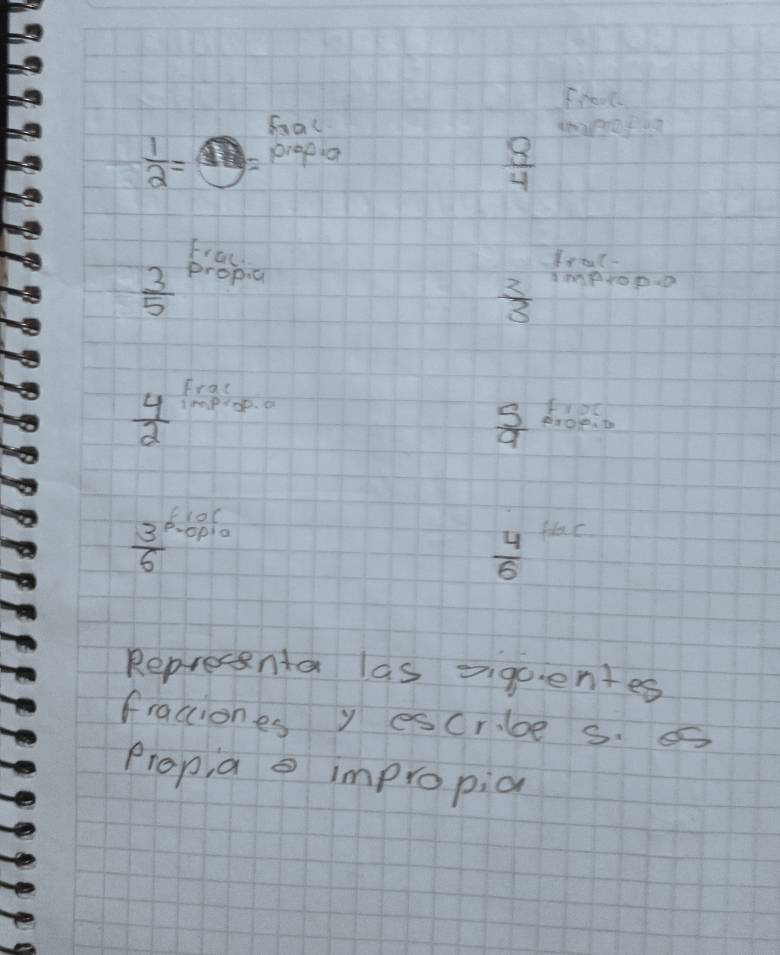 1/2 = = frac. propia
8/4 Frac. impropia
3/5 Frac. propia
3/3 frac. impropia
4/2 Frac impropia
5/9 frac propia
3/6 frac propia
4/6 frac
Representa las siguientes
fracciones y escribe si es
propia o impropia